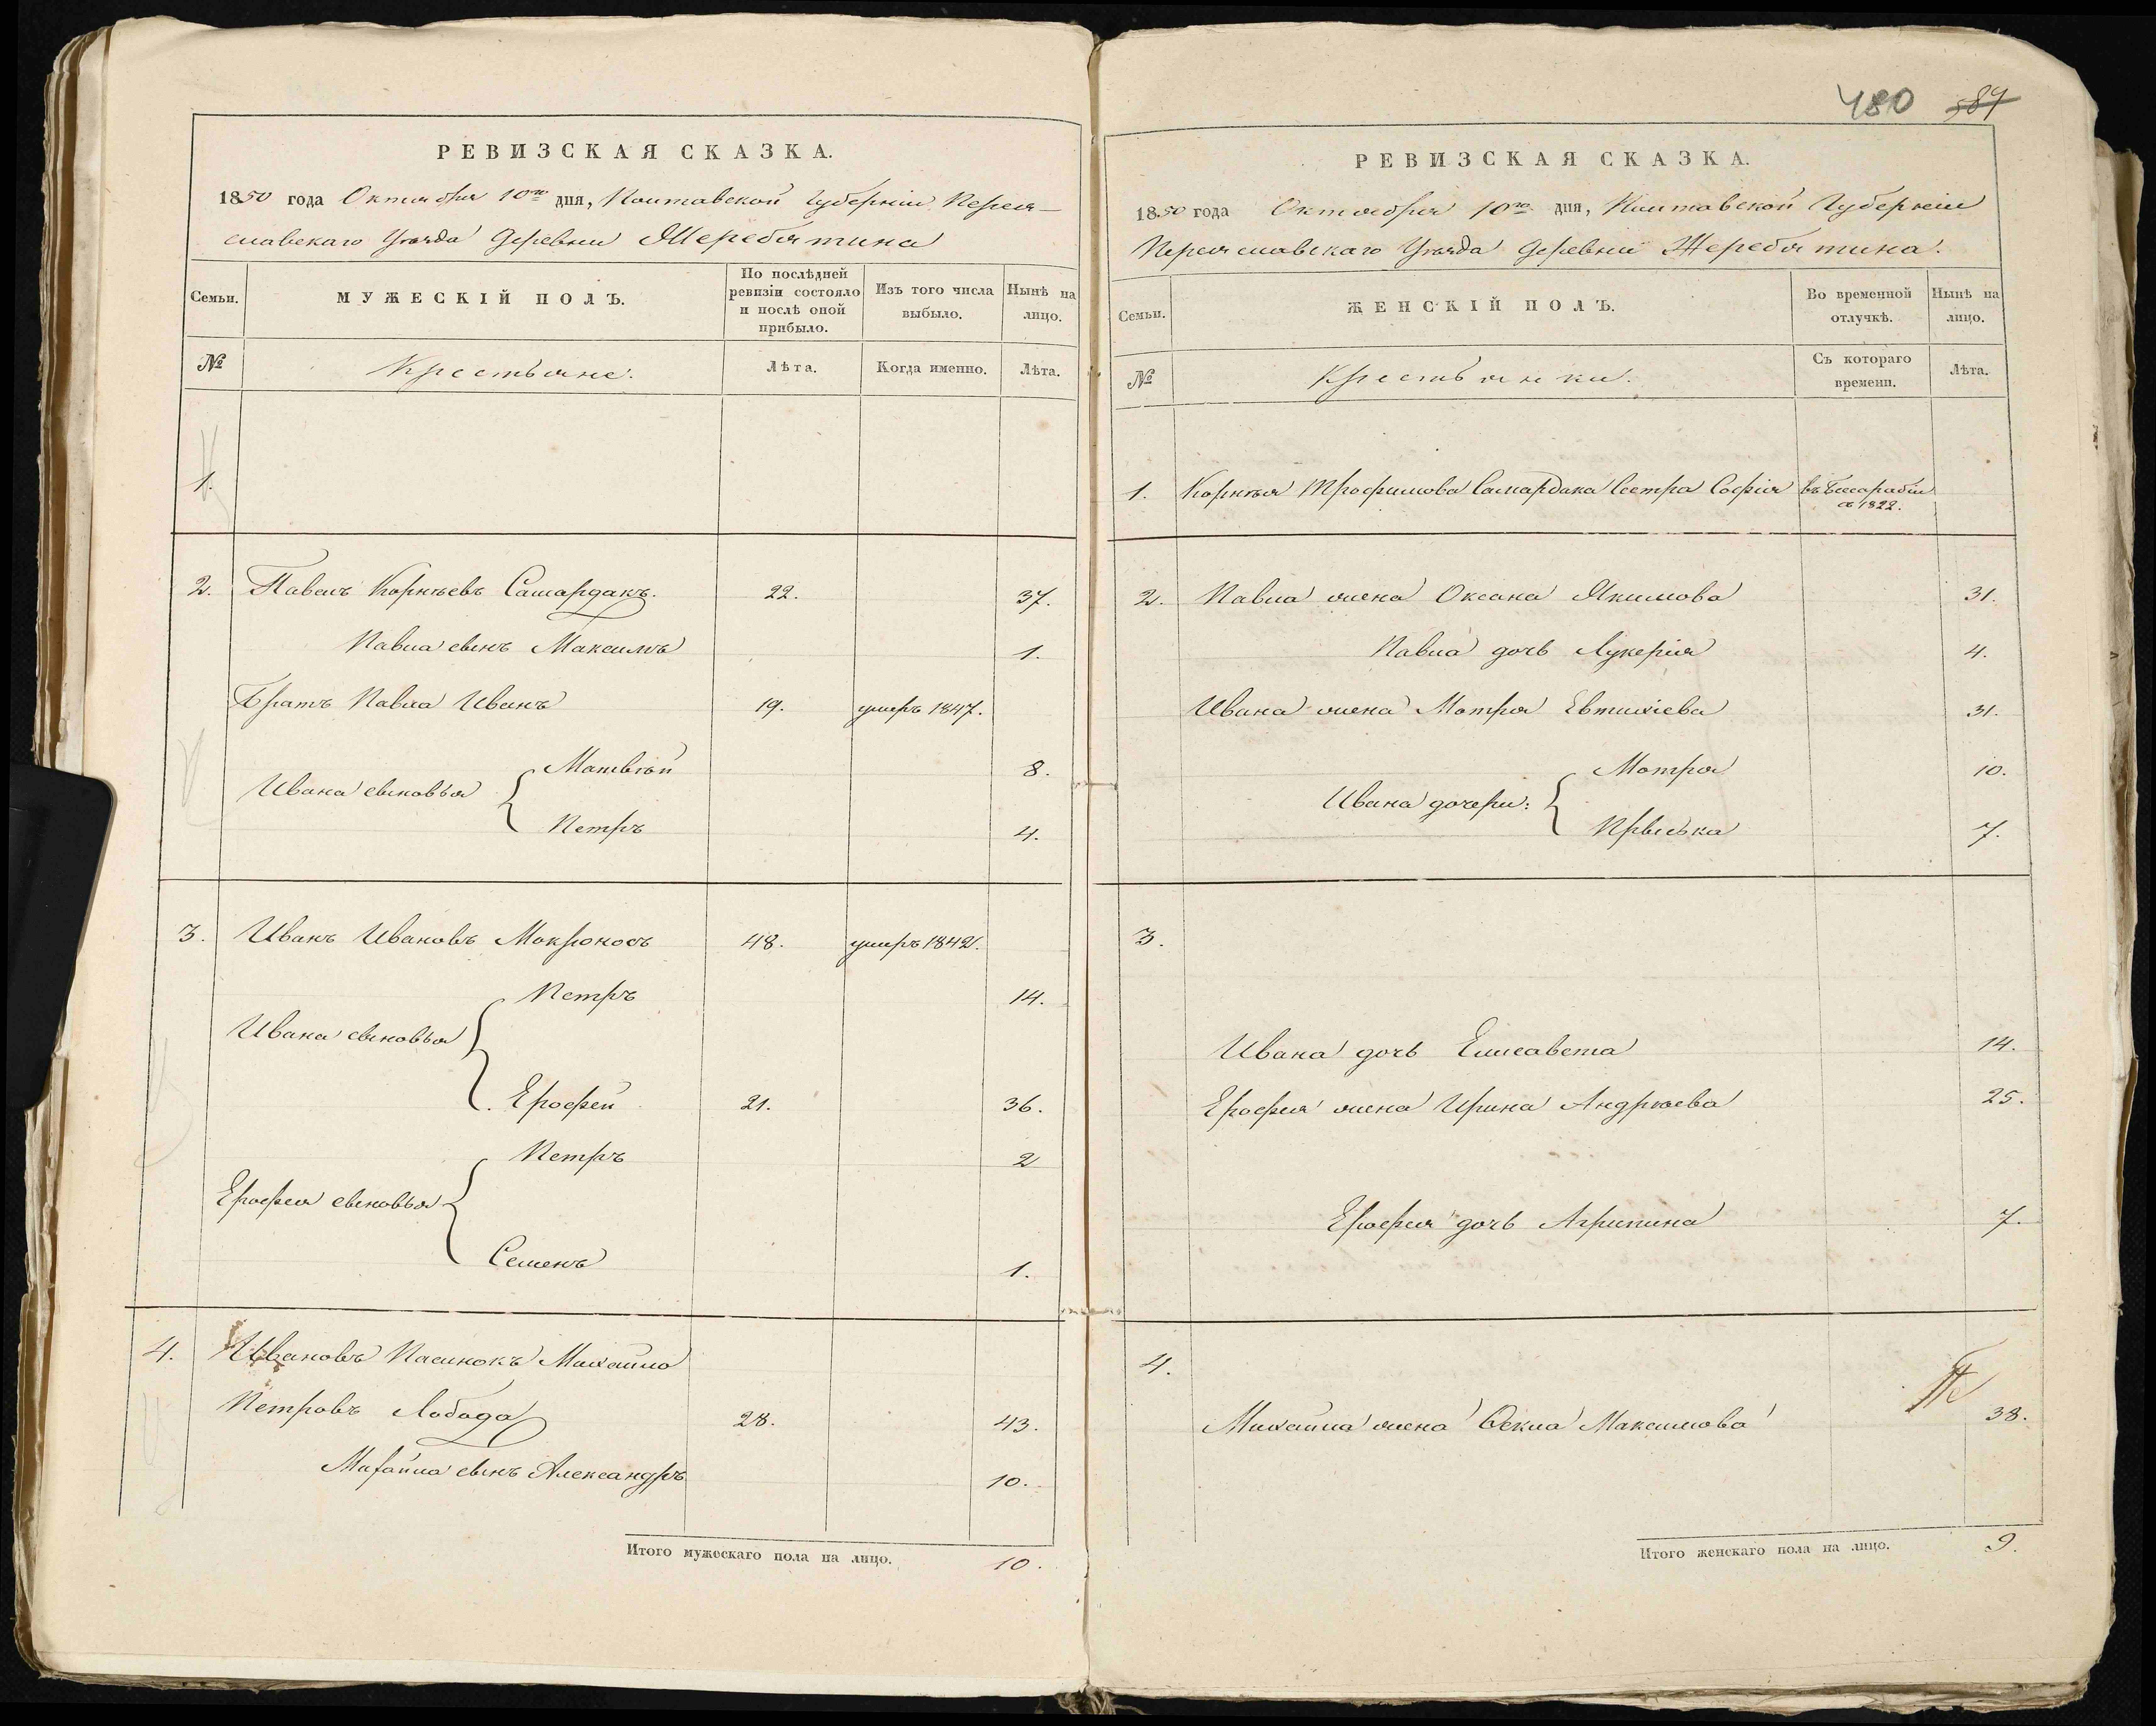 РЕВИЗСКАЯ СКАЗКА.
1850 года Октября 10го дня, Полтавской Губерніи Перея-
славскаго Уѣзда Деревни Жеребятина
Семьи.
МУЖЕСКІЙ ПОЛЪ.
По послѣдней ревизіи состояло и послѣ оной прибыло.
Изъ того числа выбыло.
Нынѣ на лицо.
№
Крестьяне.
Лѣта.
Когда именно.
Лѣта.
1.
2. Павелъ Корнѣевъ Самардакъ. 22. 37.
Павла сынъ Максимъ 1.
Братъ Павла Иванъ 19. умеръ 1847.
Матвѣй 8.
Ивана сыновья
Петръ 4.
3. Иванъ Ивановъ Мокроносъ 48. умеръ 1842.
Петръ 14.
Ивана сыновья
Ерофей 21. 36.
Петръ 2
Ерофея сыновья
Семенъ 1.
4. Ивановъ Пасинокъ Михайло
Петровъ Лобода 28. 43.
Михайла сынъ Александръ 10.
Итого мужескаго пола на лицо. 10.
480 584
РЕВИЗСКАЯ СКАЗКА.
1850 года Октября 10го дня, Полтавской Губерніи
Переяславскаго Уѣзда Деревни Жеребятина.
Семьи.
ЖЕНСКІЙ ПОЛЪ.
Во временной отлучкѣ.
Нынѣ на лицо.
№
Крестьянки.
Съ котораго времени.
Лѣта.
1. Корнѣя Трофимова Самардака Сестра Софія въ Бессарабіи
съ 1822.
2. Павла жена Оксана Якимова 31.
Павла дочь Лукерія 4.
Ивана жена Мотря Евтихіева 31.
Мотря 10.
Ивана дочери:
Прыська 7.
3.
Ивана дочь Елисавета 14.
Ерофея жена Ирина Андреева 25.
Ерофея дочь Агрипина 7.
4.
Михайла жена Ѳекла Максимова 38.
Итого женскаго пола на лицо. 9.